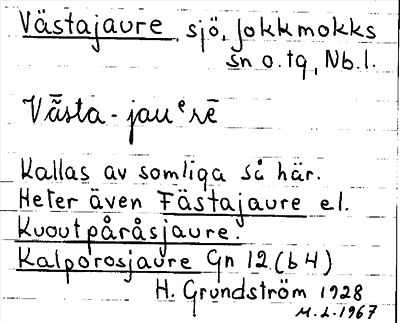 Västajaure, sjö, Jokkmokks
sn o. tg, Nb. l.
Vā̈sta-jauᵉrē
Kallas av somliga så här.
Heter även Fästajaure el.
Kuoutpåråsjaure.
Kalporosjaure Gn 12 (b 4)
H. Grundström 1928
M. L. 1967